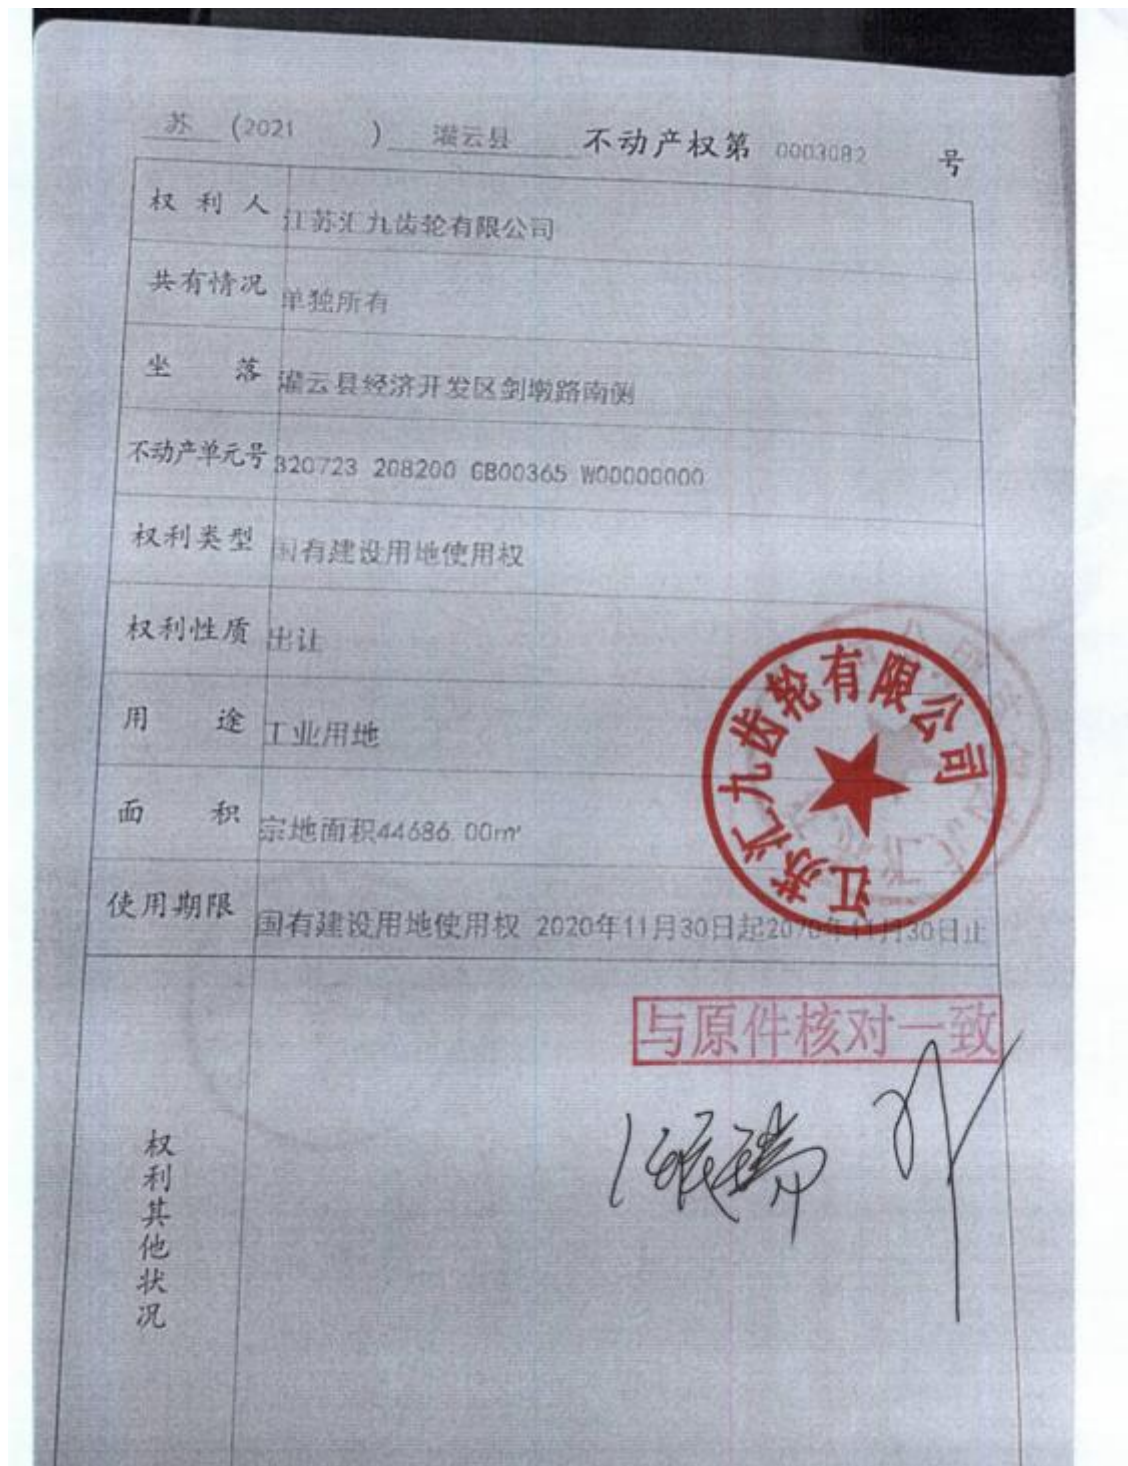 苏 (2021 ) 灌云县 不动产权第 0003082 号
权利人 江苏汇九齿轮有限公司
共有情况 单独所有
坐落 灌云县经济开发区剑墩路南侧
不动产单元号 320723 208200 GB00365 W00000000
权利类型 国有建设用地使用权
权利性质 出让
用途 工业用地
面积 宗地面积44686.00㎡
使用期限 国有建设用地使用权 2020年11月30日起2070年11月30日止
江苏汇九齿轮有限公司
与原件核对一致
权利其他状况